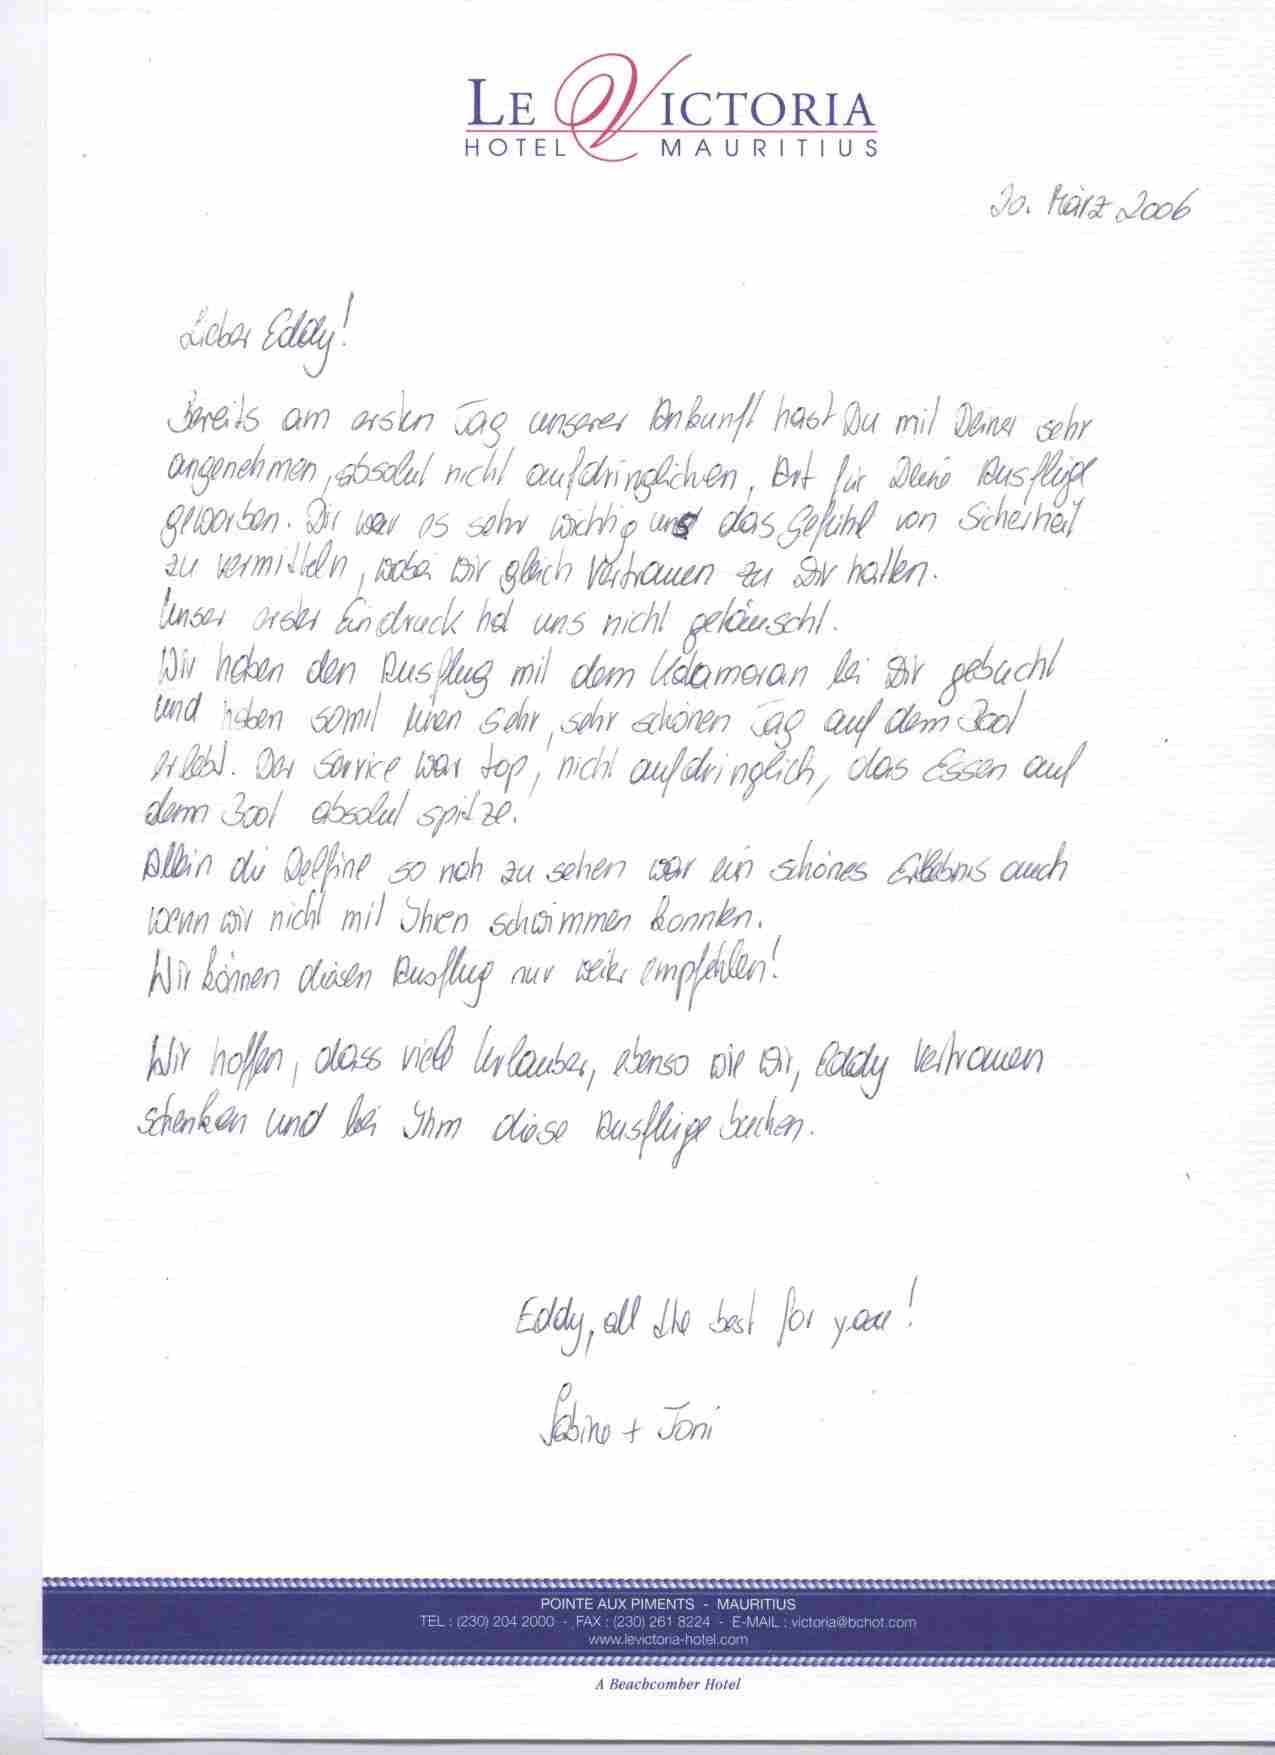 LE VICTORIA
HOTEL MAURITIUS
20. März 2006
Lieber Eddy!
Bereits am ersten Tag unserer Ankunft hast Du mit Deiner sehr
angenehmen, absolut nicht aufdringlichen, Art für Deine Ausflüge
geworben. Dir war es sehr wichtig uns das Gefühl von Sicherheit
zu vermitteln, wobei wir gleich Vertrauen zu Dir hatten.
Unser erster Eindruck hat uns nicht getäuscht.
Wir haben den Ausflug mit dem Katamaran bei Dir gebucht
und haben somit einen sehr, sehr schönen Tag auf dem Boot
erlebt. Der Service war top, nicht aufdringlich, das Essen auf
dem Boot absolut spitze.
Allein die Delfine so nah zu sehen war ein schönes Erlebnis auch
wenn wir nicht mit Ihnen schwimmen konnten.
Wir können diesen Ausflug nur weiter empfehlen!
Wir hoffen, dass viele Urlauber, ebenso wie wir, Eddy Vertrauen
schenken und bei Ihm diese Ausflüge buchen.
Eddy, all the best for you!
Sabine + Toni
POINTE AUX PIMENTS - MAURITIUS
TEL : (230) 204 2000 - FAX : (230) 261 8224 - E-MAIL : victoria@bchot.com
www.levictoria-hotel.com
A Beachcomber Hotel